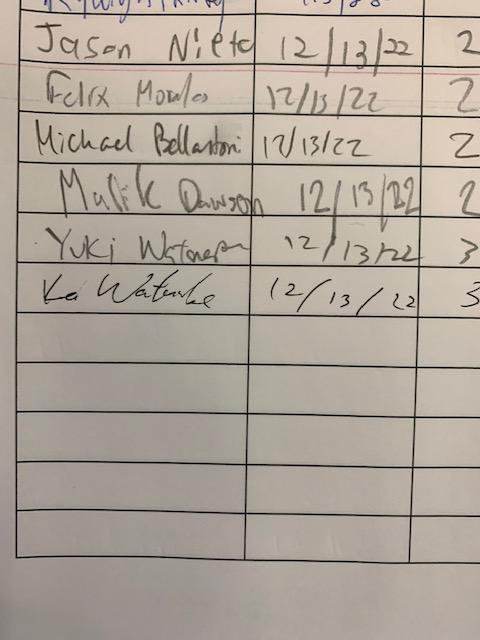 Jason Nieto 12/13/22 2
Felix Morales 12/13/22 2
Michael Bellantoni 12/13/22 2
Malik Dawson 12/13/22 2
Yuki 12/13/22 3
12/13/22 3